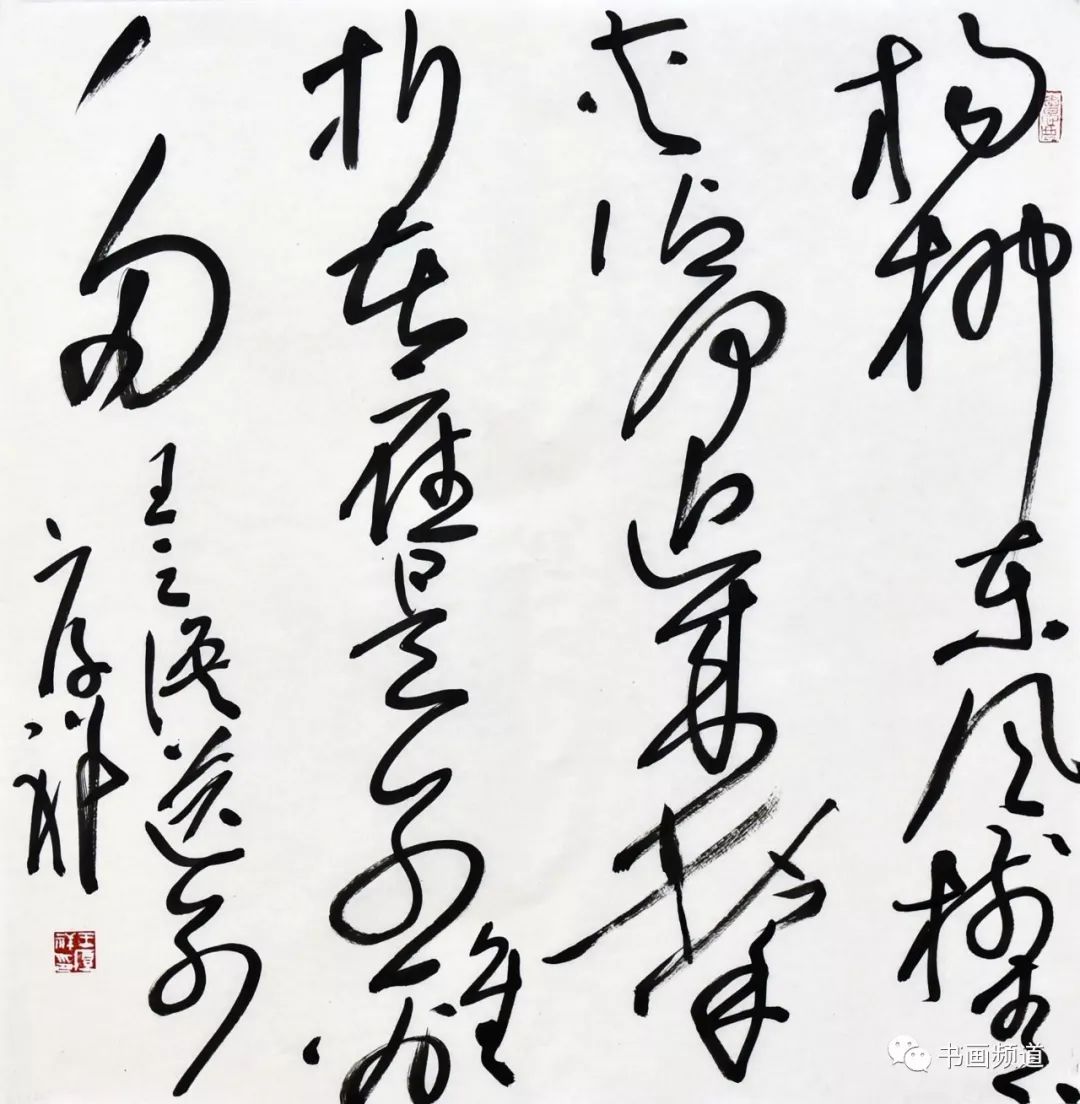 杨柳东风树青々
夹御河近来攀
折苦应是别离
多
王之涣送别
厚祥
王厚祥印
书画频道